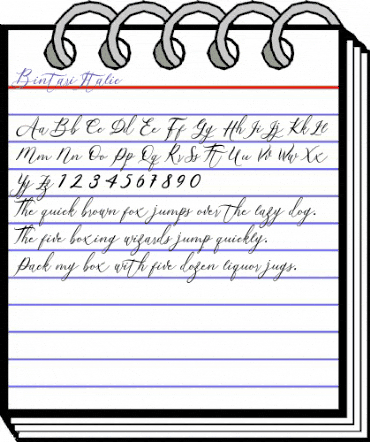 Bintari Italic
Aa Bb Cc Dd Ee Ff Gg Hh Ii Jj Kk Ll
Mm Nn Oo Pp Qq Rr Ss Tt Uu Vv Ww Xx
Yy Zz 1 2 3 4 5 6 7 8 9 0
The quick brown fox jumps over the lazy dog.
The five boxing wizards jump quickly.
Pack my box with five dozen liquor jugs.